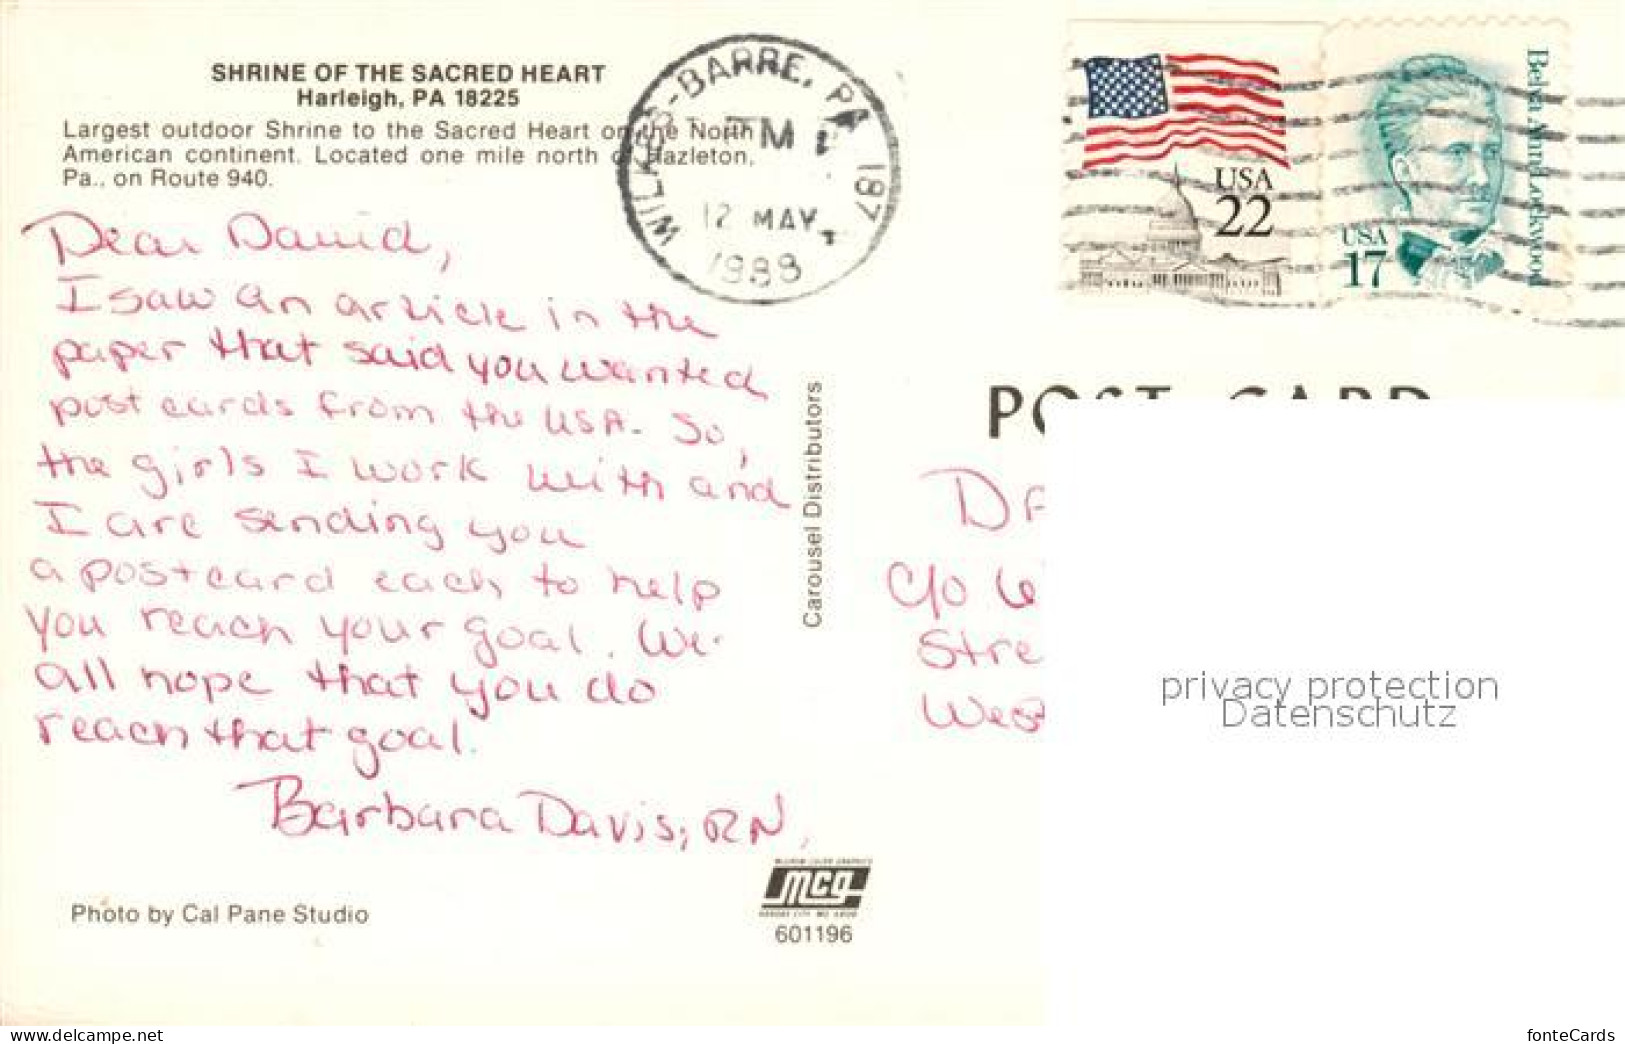 SHRINE OF THE SACRED HEART
Harleigh, PA 18225
Largest outdoor Shrine to the Sacred Heart on the North
American continent. Located one mile north of Hazleton,
Pa., on Route 940.
WILKES-BARRE, PA 187
PM
12 MAY
1988
USA
22
USA
17
Belva Ann Lockwood
Dear David,
I saw an article in the
paper that said you wanted
post cards from the USA. So,
the girls I work with and
I are sending you
a postcard each to help
you reach your goal. We
all hope that you do
reach that goal.
Barbara Davis, RN
Carousel Distributors
POST CARD
DA
c/o
Stre
West
privacy protection
Datenschutz
Photo by Cal Pane Studio
mcg
601196
www.delcampe.net
fonteCards